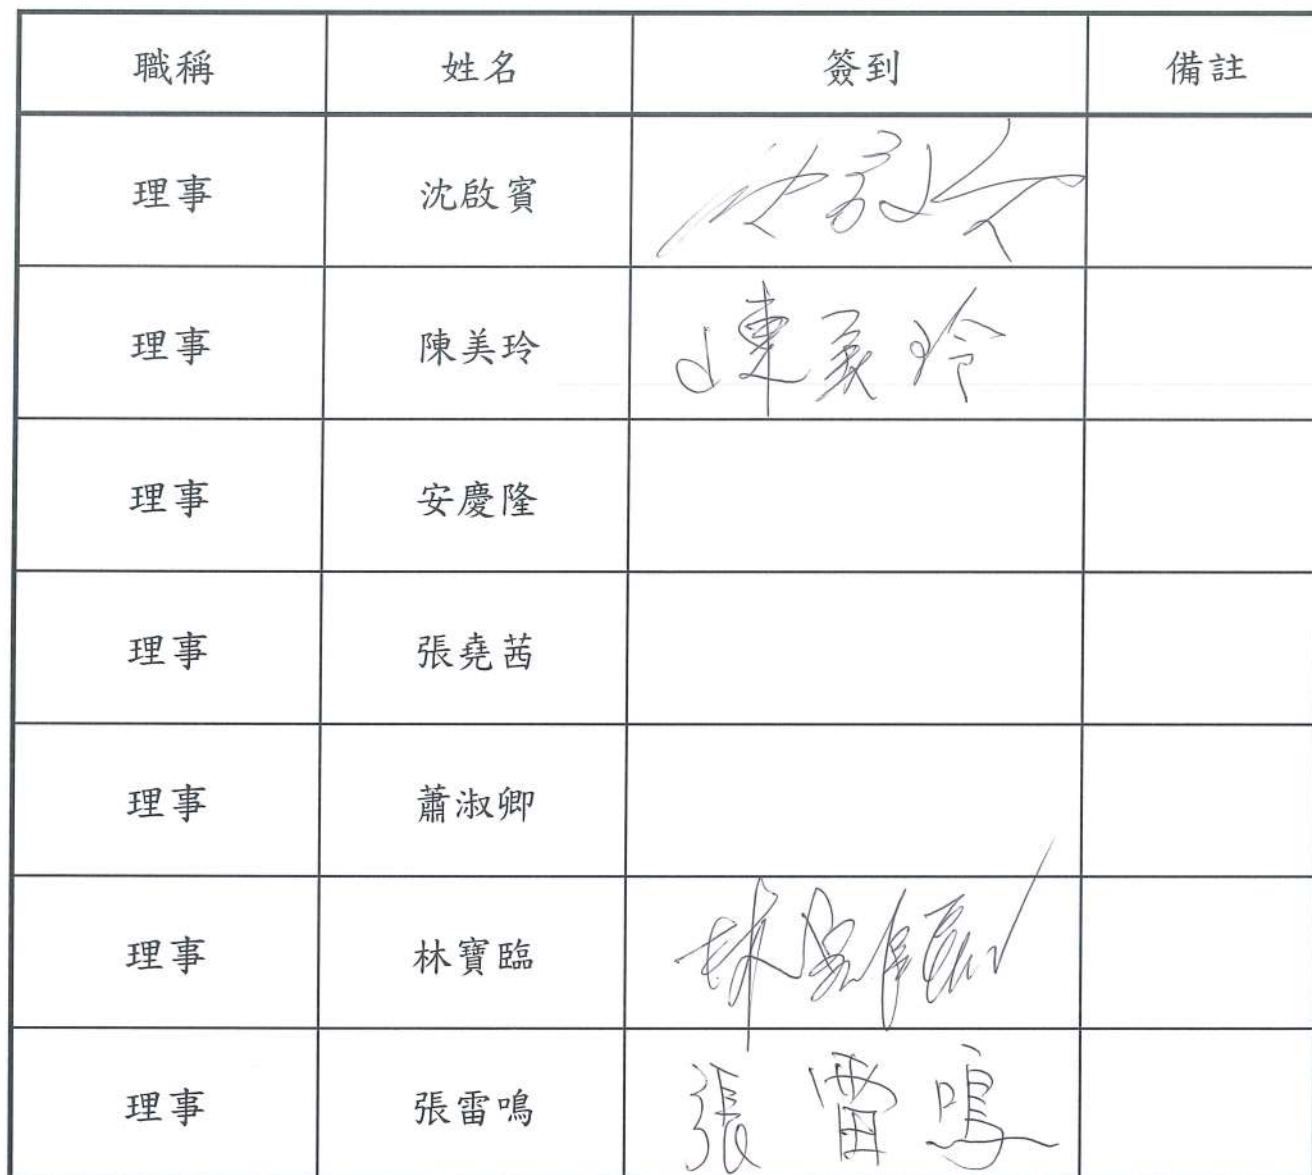 職稱 姓名 簽到 備註
理事 沈啟賓
理事 陳美玲 陳美玲
理事 安慶隆
理事 張堯茜
理事 蕭淑卿
理事 林寶臨 林寶臨
理事 張雷鳴 張雷鳴